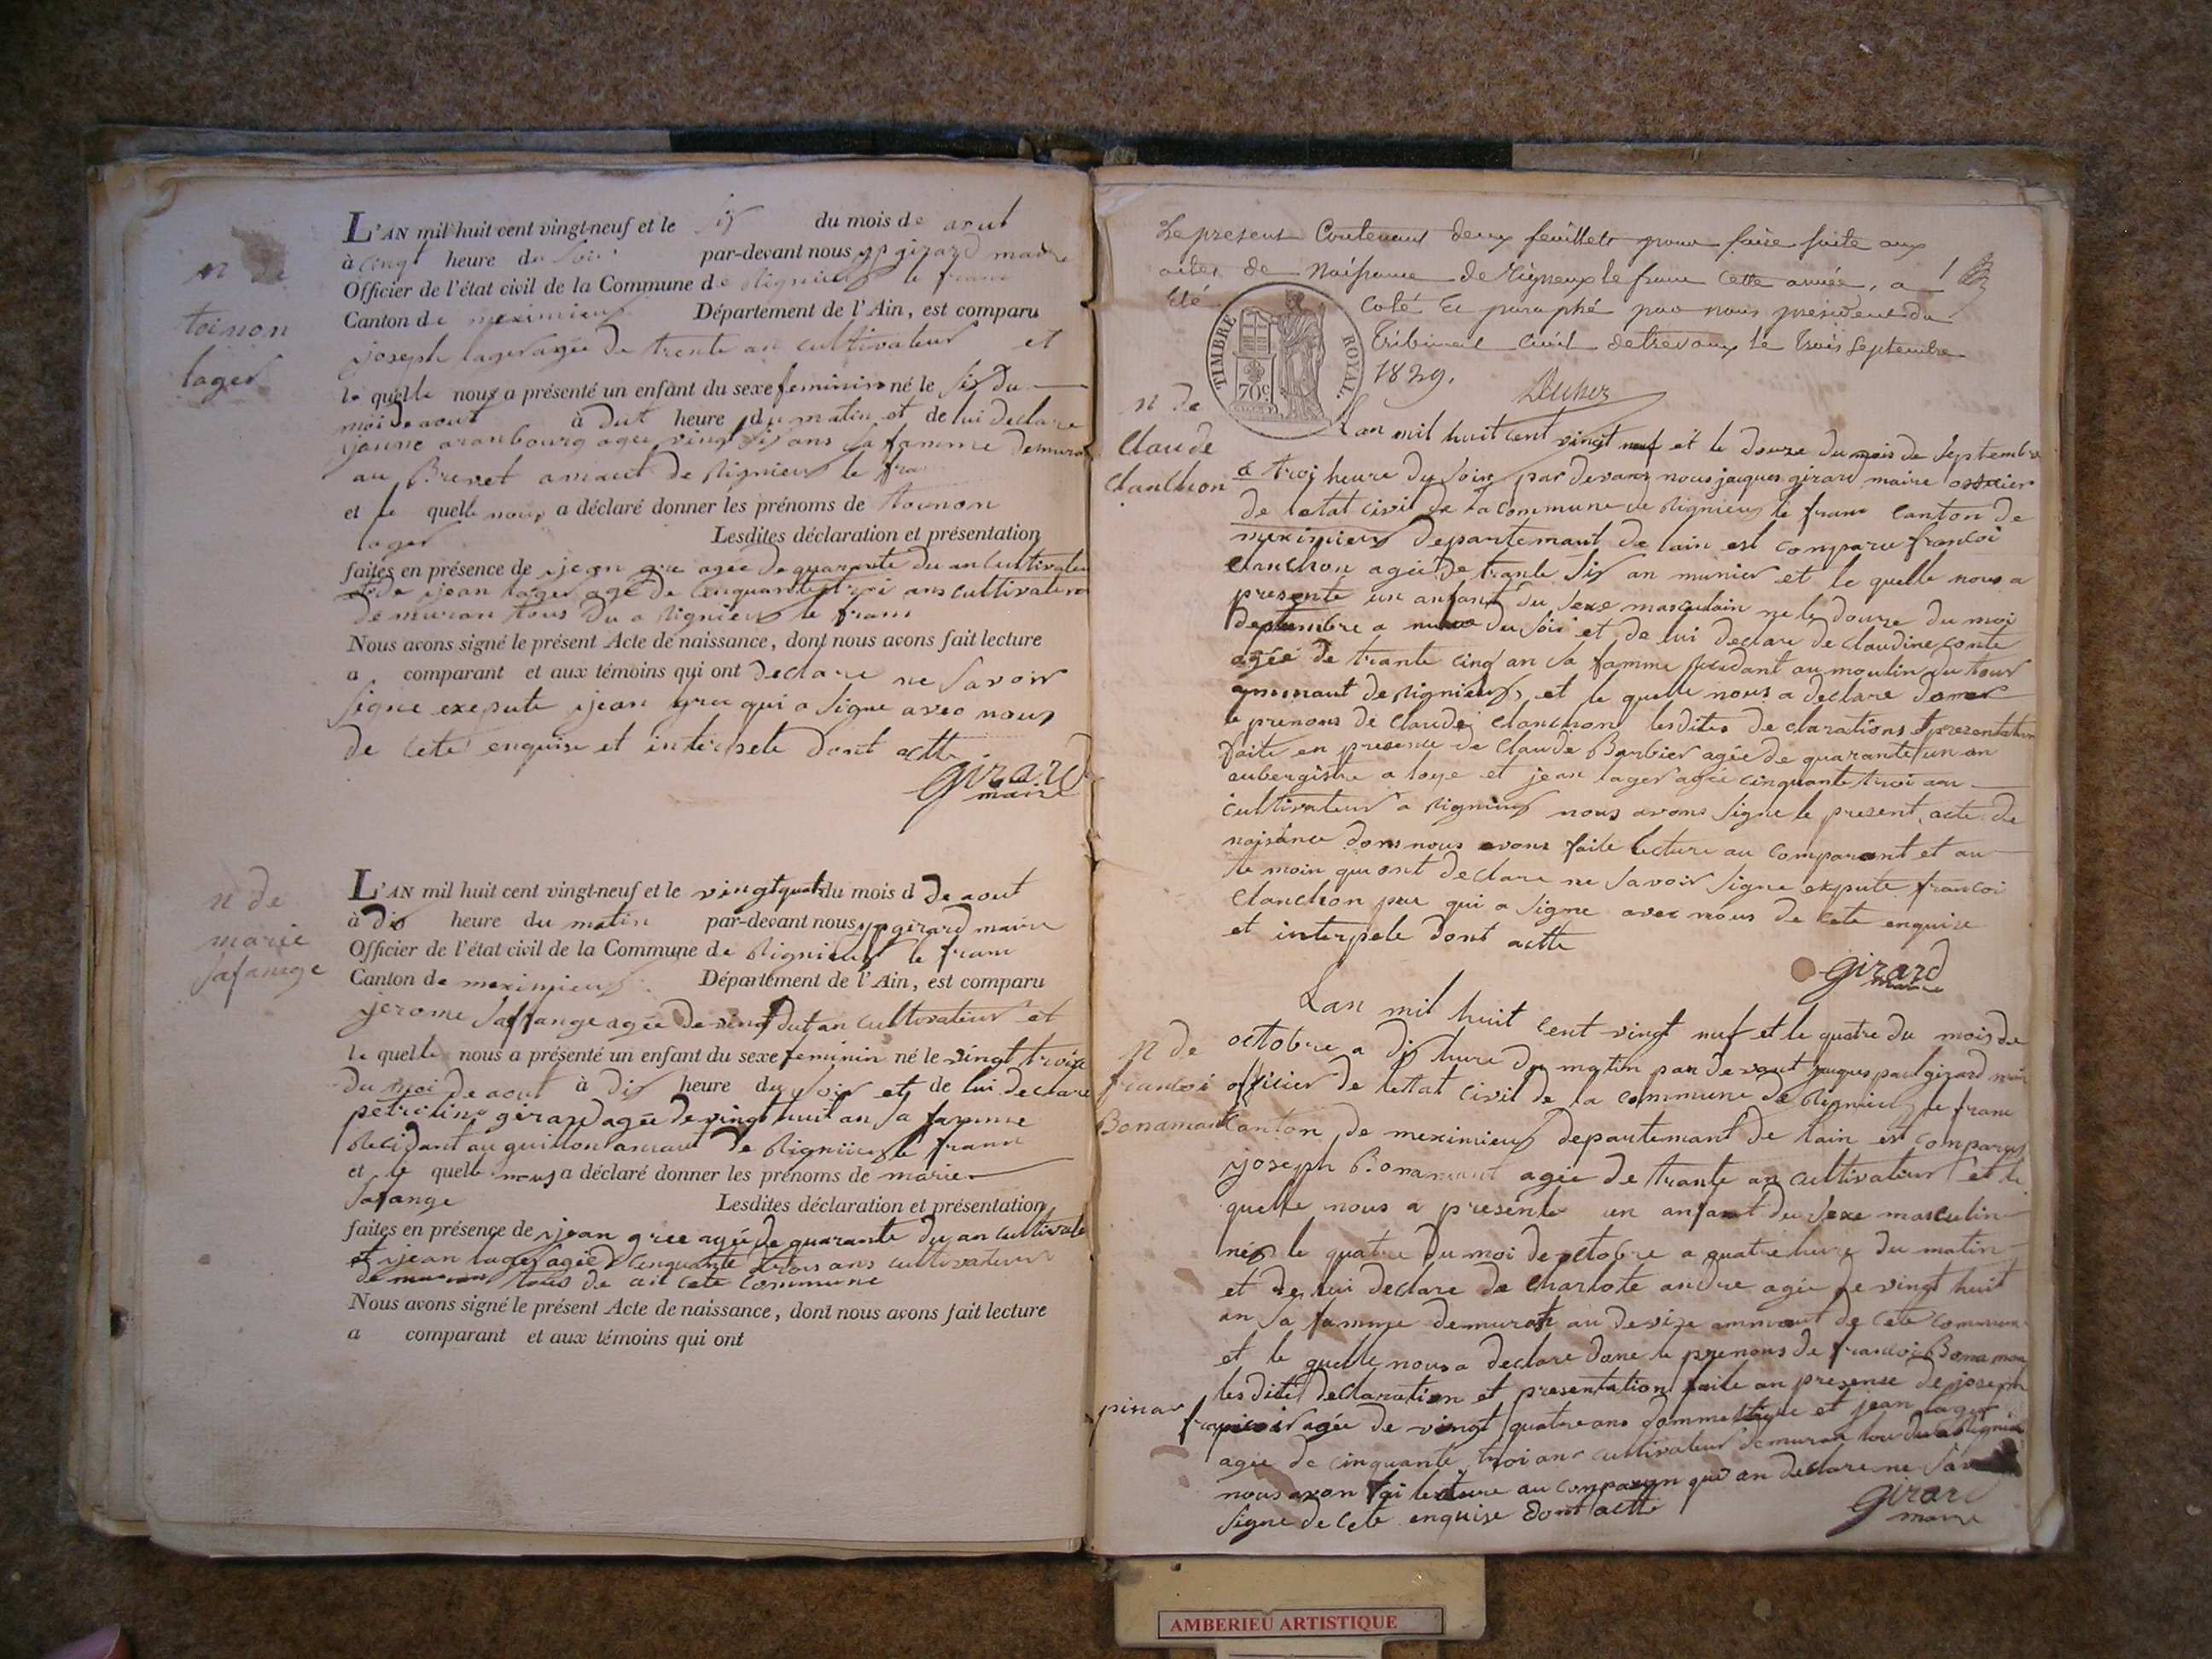 n de
toinon
lager
L'AN mil huit cent vingt-neuf et le six du mois de aout
à cinqt heure du soir par-devant nous jp girard maire
Officier de l'état civil de la Commune de Rignieux le franc
Canton de meximieux Département de l'Ain, est comparu
joseph lager agée de trente an cultivateur et
le quelle nous a présenté un enfant du sexe feminin né le six du
moi de aout à duit heure du matin et de lui declare
jeanne aranbourg agée vingt six ans sa famme demuran
au Brevet amaut de Rignieux le fra
et le quelle nous a déclaré donner les prénoms de toinon
lager Lesdites déclaration et présentation
faites en présence de ijean gree agée de quarante du an cultivateur
et de ijean lager agé de cinquante troi ans cultivateur
demuran tous du a Rignieux le franc
Nous avons signé le présent Acte de naissance, dont nous avons fait lecture
a comparant et aux témoins qui ont declare ne savoir
signe exepute ijean gree qui a signe avec nous
de cete enquise et interpele dont actte
girard
maire
n de
marie
Safange
L'AN mil huit cent vingt-neuf et le vingt quatr du mois d de aout
à dix heure du matin par-devant nous jp girard maire
Officier de l'état civil de la Commune de Rignieux le franc
Canton de meximieux Département de l'Ain, est comparu
jerome Saffange agée de vingt duit an cultivateur et
le quelle nous a présenté un enfant du sexe feminin né le vingt troix
du moi de aout à dix heure du soir et de lui declare
petroline girard agée de vingt huit an sa famme
Residant au guillon amaut de Rignieux le franc
et le quelle nous a déclaré donner les prénoms de marie
Safange Lesdites déclaration et présentation
faites en présence de ijean gree agée de quarante du an cultivate
et ijean lager agée cinquante trois ans cultivateur
demuran tous de cete commune
Nous avons signé le présent Acte de naissance, dont nous avons fait lecture
a comparant et aux témoins qui ont
Le present Contenant deux feuillets pour faire suite aux
actes de Naissance de Rigneux le franc cette année, a
été coté et paraphé par nous president du
Tribunal Civil de trevoux le trois Septembre
1829.
TIMBRE ROYAL
70c
n de
Claude
Clanchon
Lan mil huit cent vingt neuf et le douze du mois de Septembre
a troi heure du soir par devant nous jacques girard maire officier
de letat civil de la commune de Rignieux le franc Canton de
meximieux departemant de lain est comparu francoi
Clanchon agée de trante six an munier et le quelle nous a
presente un anfant du sexe masculain ne le douze du moi
deptembre a du soir et de lui declare de claudine conte
agée de trante cinq an sa famme Residant au moulin du tour
ammaut de Rignieux et le quelle nous a declare doner
le prenoms de Claude Clanchon les dites de clarations et presentation
faite en presence de Claude Barbier agée de quarante un an
aubergistre a loye et jean lager agée cinquante troi an
cultivateur a Rignieux nous avons signe le present acte de
naisance dont nous avons faite lecture au comparant et au
te moin qui ont declare ne savoir signe expute francoi
Clanchon pere qui a signe avec nous de cete enquise
et interpele dont actte
girard
maire
n de
francoi
Bonamant
Lan mil huit cent vingt neuf et le quatre du mois de
octobre a dix hure du matin par devant jaques paul girard mair
officier de lettat civil de la commune de Rignieux le franc
Canton de meximieux departemant de lain est comparus
joseph Bonamant agée de trante an cultivateur et le
quelle nous a presente un anfant du sexe masculin
néz le quatre du moi de octobre a quatre hure du matin
et de lui declare de Charlote andre agée de vingt huit
an sa famme demurant au devize ammaut de cete commune
et le quelle nous a declare done le prenoms de francoi Bonaman
les dite declaration et presentation faite an presense de joseph
pinar agée de vingt quatre ans dommestique et jean lager
agée de cinquante troi ans cultivateur demuran tou du a Rignieu
nous avon fai lecture au comparan qui an declare ne sav
signe de cete enquise dont actte
girard
maire
AMBERIEU ARTISTIQUE